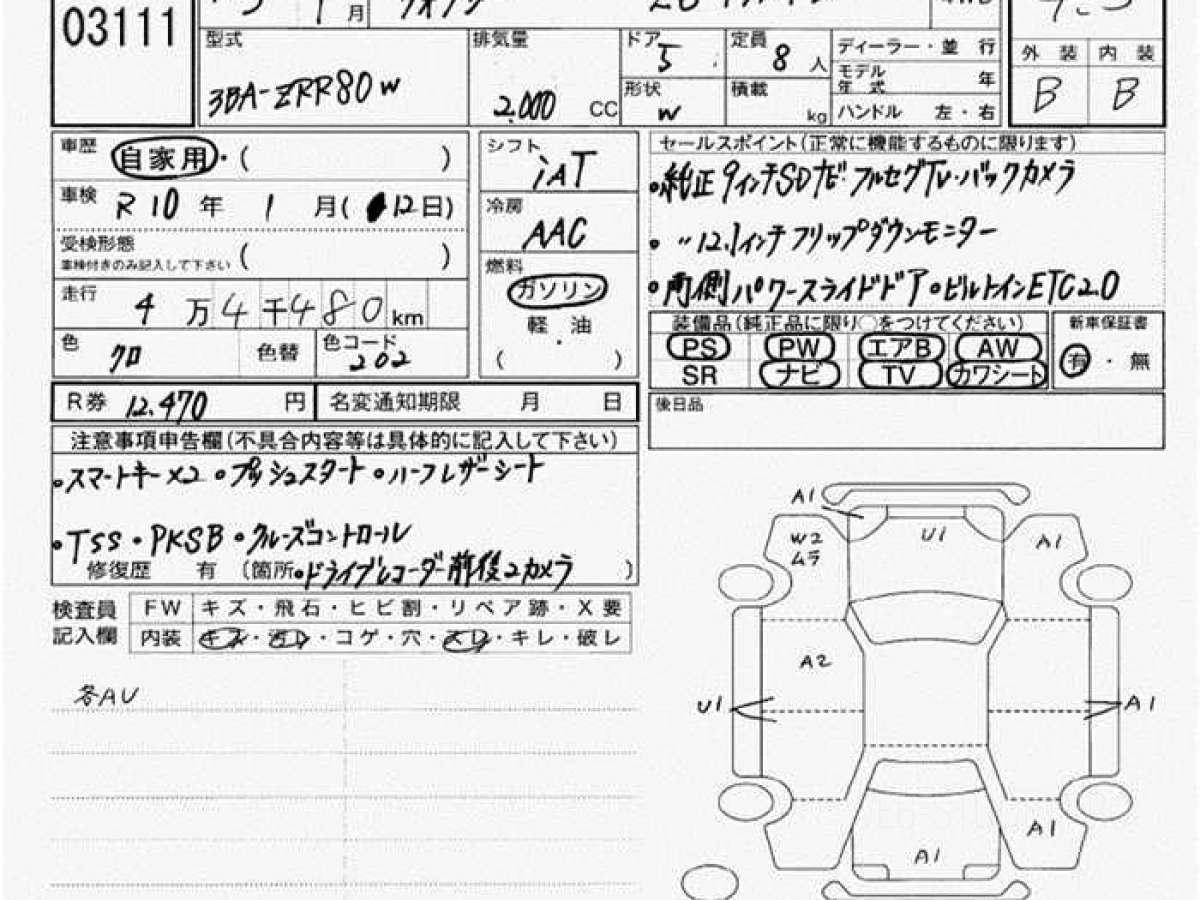 03111
月
型式
3BA-ZRR80W
排気量
2.000 CC
ドア
5
定員
8 人
形状
W
積載
kg
ディーラー・並 行
モデル年式 年
ハンドル 左・右
外 装 内 装
B B
車歴
自家用・( )
車検
R10 年 1 月( 12日)
受検形態
車検付きのみ記入して下さい ( )
走行
4 万 4 千 480 km
色
クロ
色替
色コード
202
シフト
iAT
冷房
AAC
燃料
ガソリン
軽 油
( ・ )
セールスポイント(正常に機能するものに限ります)
・純正9インチSDナビ・フルセグTV・バックカメラ
・〃12.1インチフリップダウンモニター
・両側パワースライドドア・ビルトインETC2.0
装備品(純正品に限り○をつけてください)
PS PW エアB AW
SR ナビ TV カワシート
新車保証書
有・無
R券 12,470 円
名変通知期限 月 日
後日品
注意事項申告欄(不具合内容等は具体的に記入して下さい)
・スマートキー×2 ・プッシュスタート ・ハーフレザーシート
・TSS・PKSB・クルーズコントロール
修復歴 有 (箇所・ドライブレコーダー前後2カメラ )
検査員記入欄
FW キズ・飛石・ヒビ割・リペア跡・X要
内装 キズ・汚レ・コゲ・穴・スレ・キレ・破レ
各AU
A1
W2
ムラ
U1
A1
A2
U1
A1
A1
A1